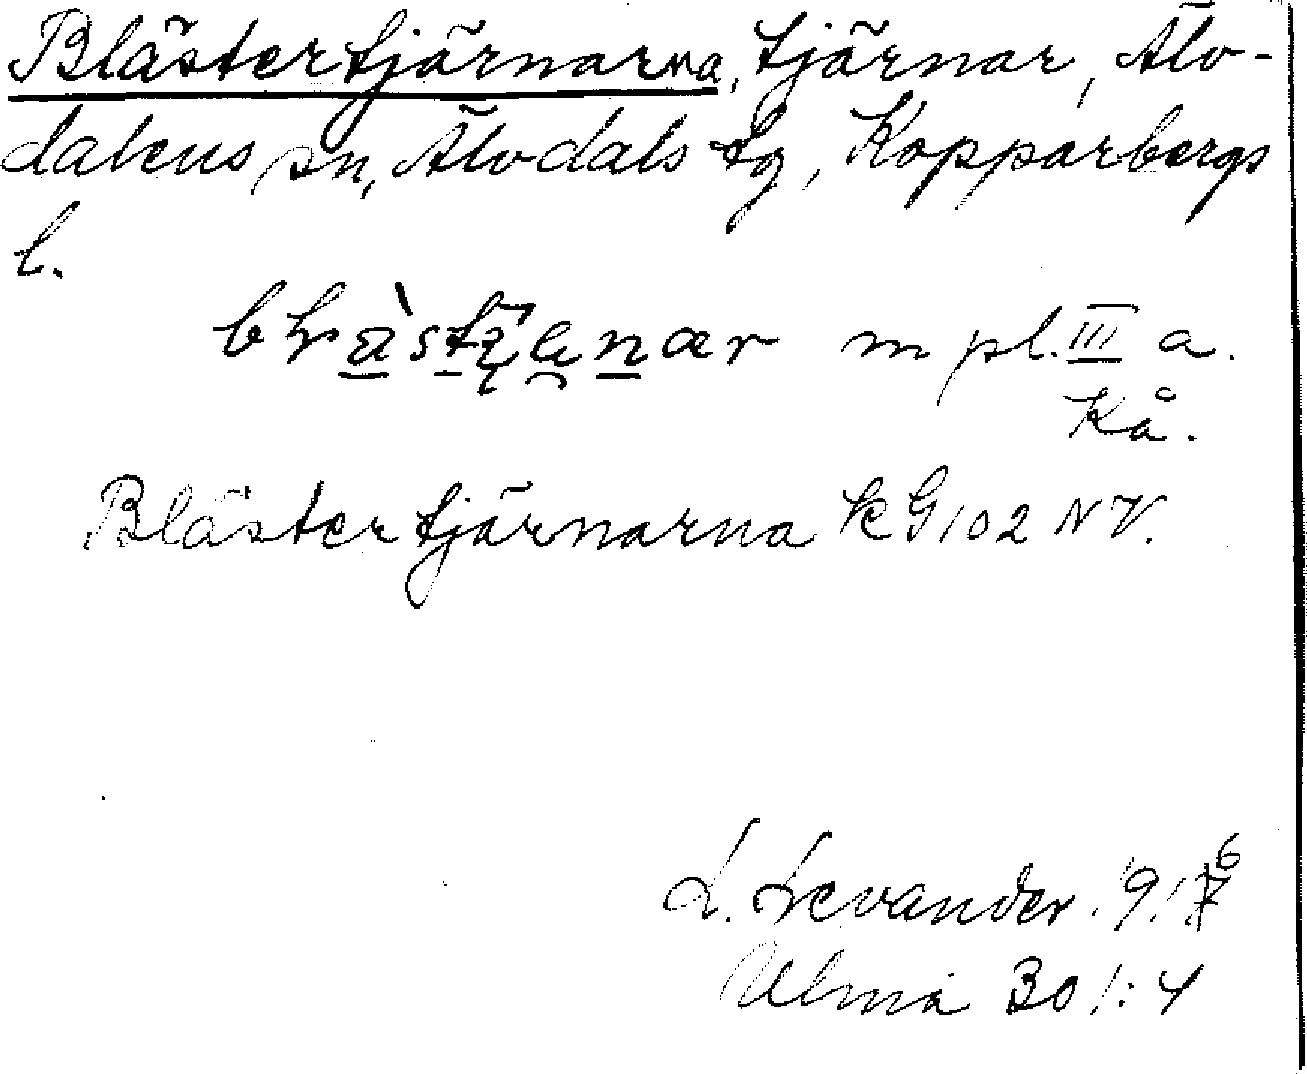 Blästertjärnarna, tjärnar, Älv-
dalens sn, Älvdals tg, Kopparbergs
l.
m pl. III a.
Kå.
Blästertjärnarna kG 102 NV.
L. Levander 19
Ulma 301:4